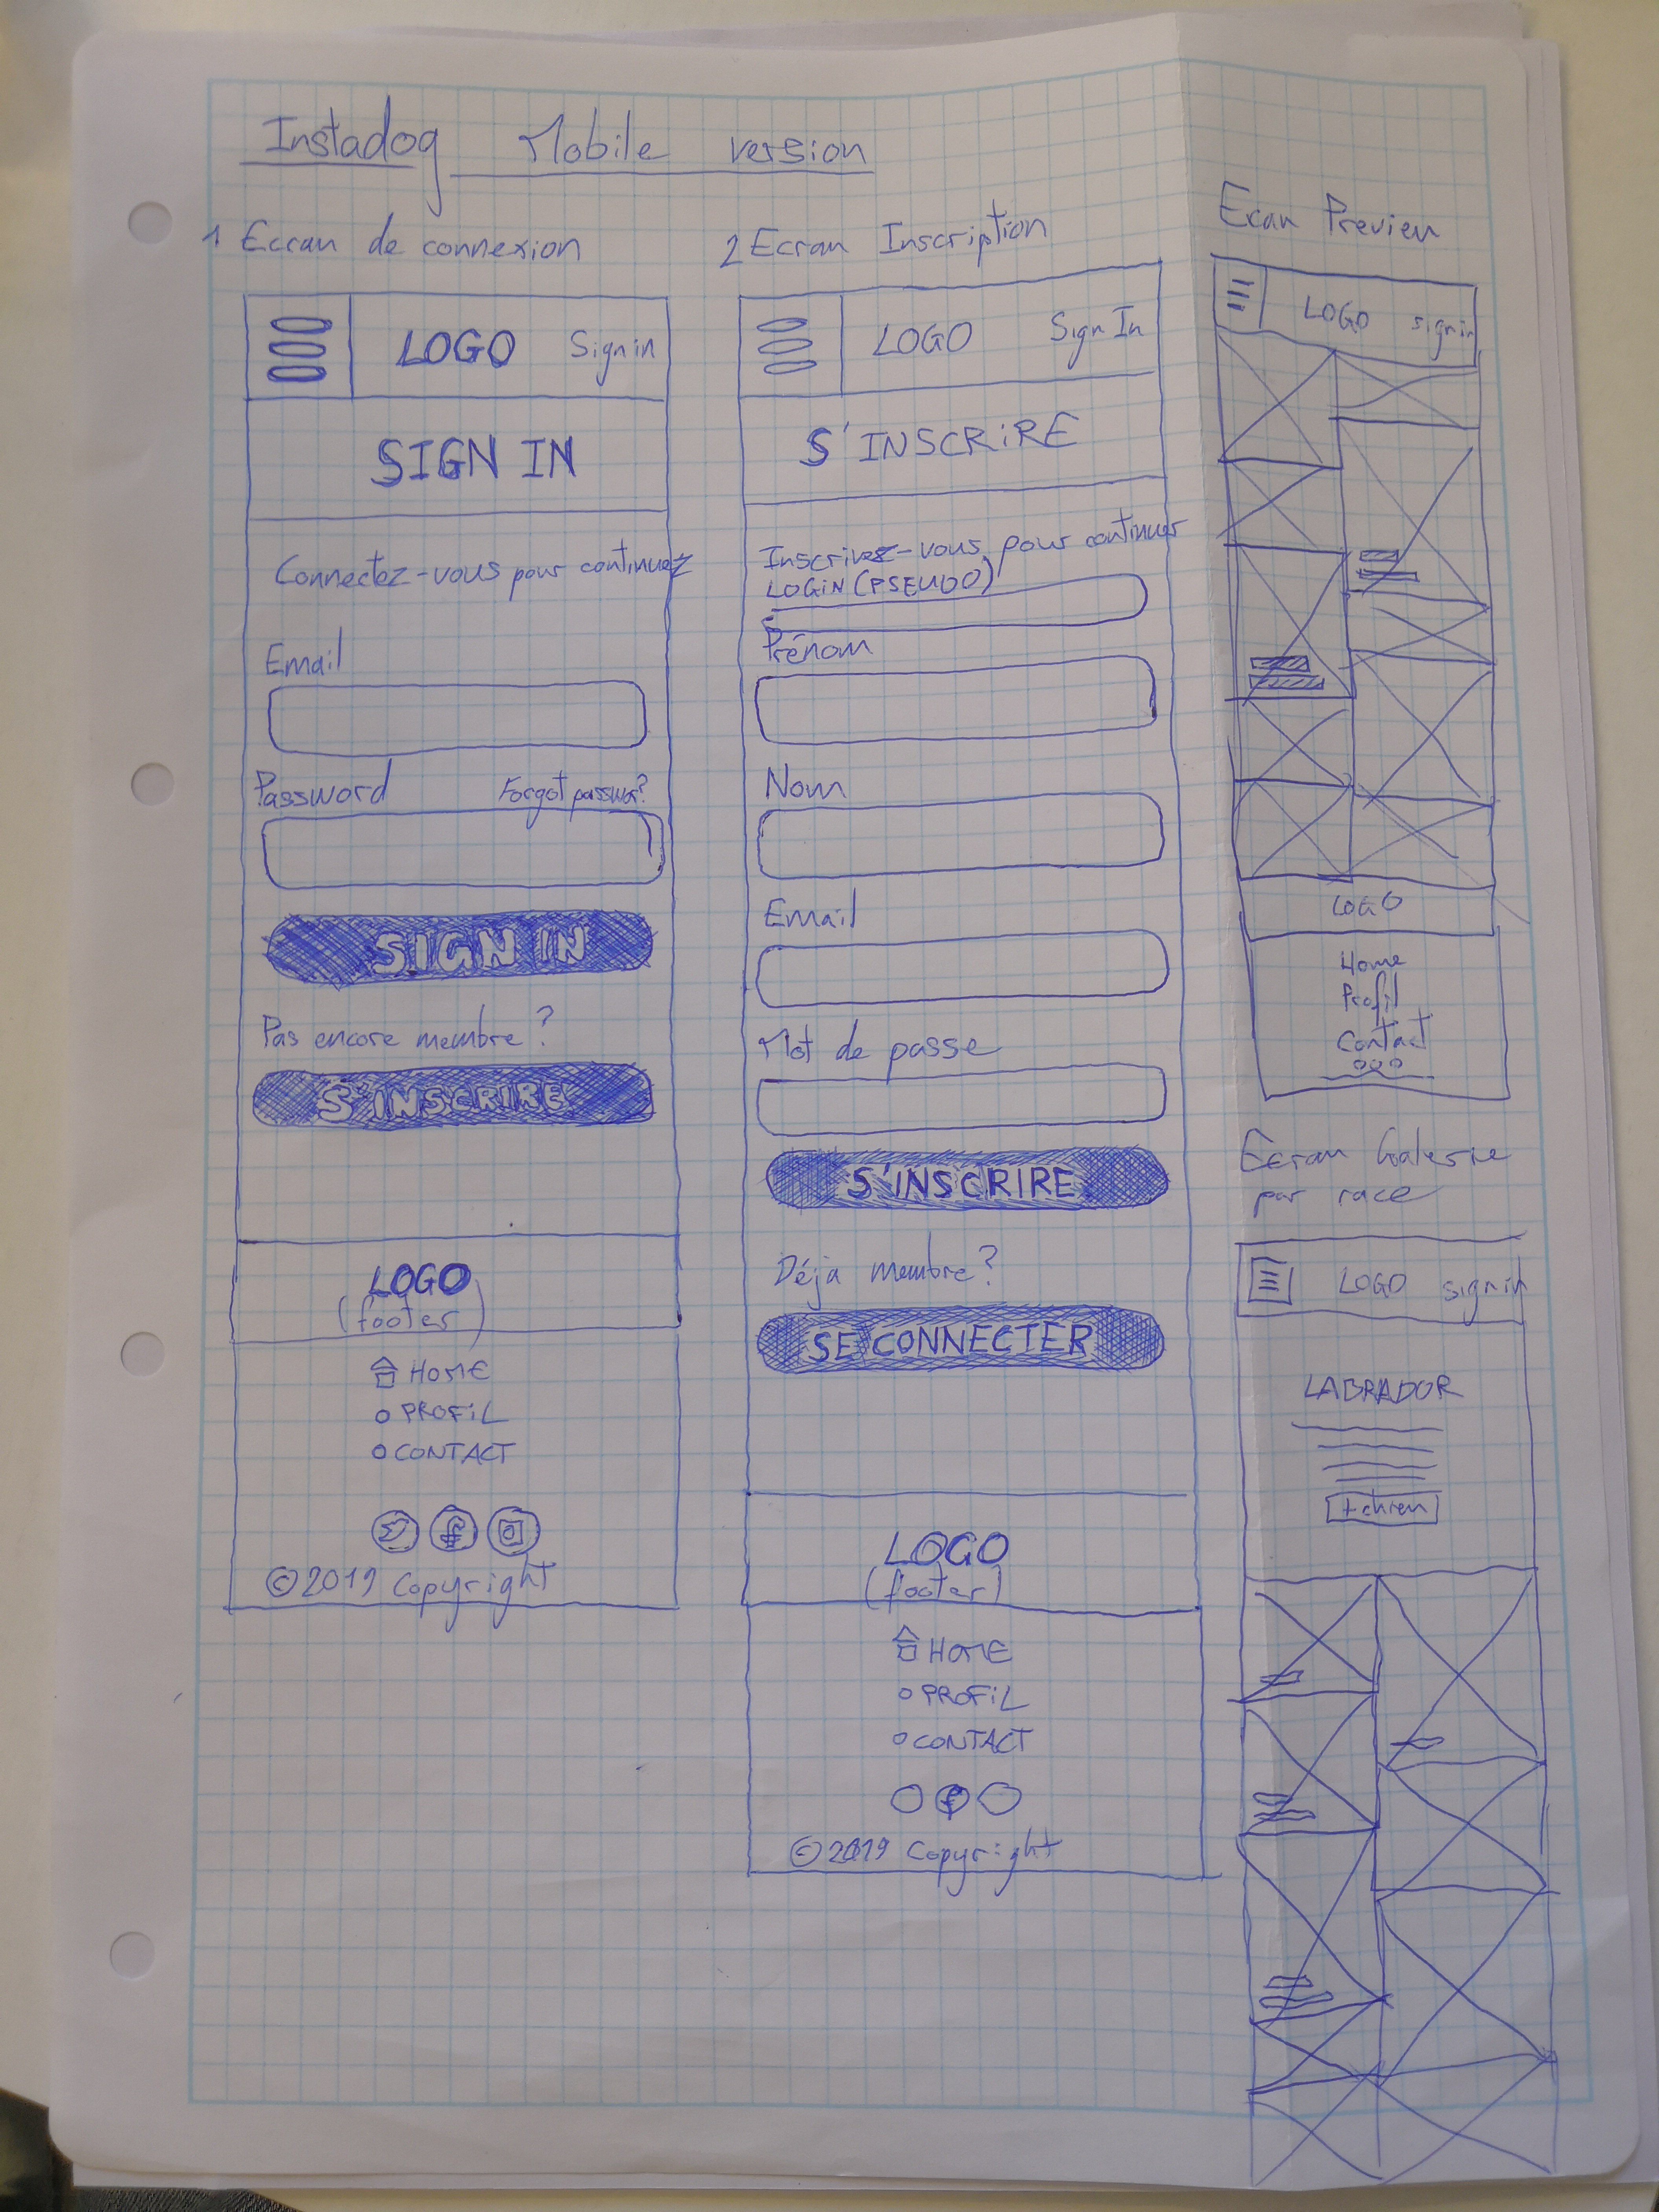 Instadog Mobile version
1 Ecran de connexion
LOGO Sign in
SIGN IN
Connectez-vous pour continuez
Email
Password Forgot passwor?
SIGN IN
Pas encore membre ?
S'INSCRIRE
LOGO
(footer)
HOME
PROFIL
CONTACT
©2019 Copyright
2 Ecran Inscription
LOGO Sign In
S'INSCRIRE
Inscrivez-vous pour continuer
LOGIN (PSEUDO)
Prénom
Nom
Email
Mot de passe
S'INSCRIRE
Déja membre ?
SE CONNECTER
LOGO
(footer)
HOME
PROFIL
CONTACT
©2019 Copyright
Ecran Preview
LOGO sign in
LOGO
Home
Profil
Contact
Ecran Galerie
par race
LOGO sign in
LABRADOR
+ chien